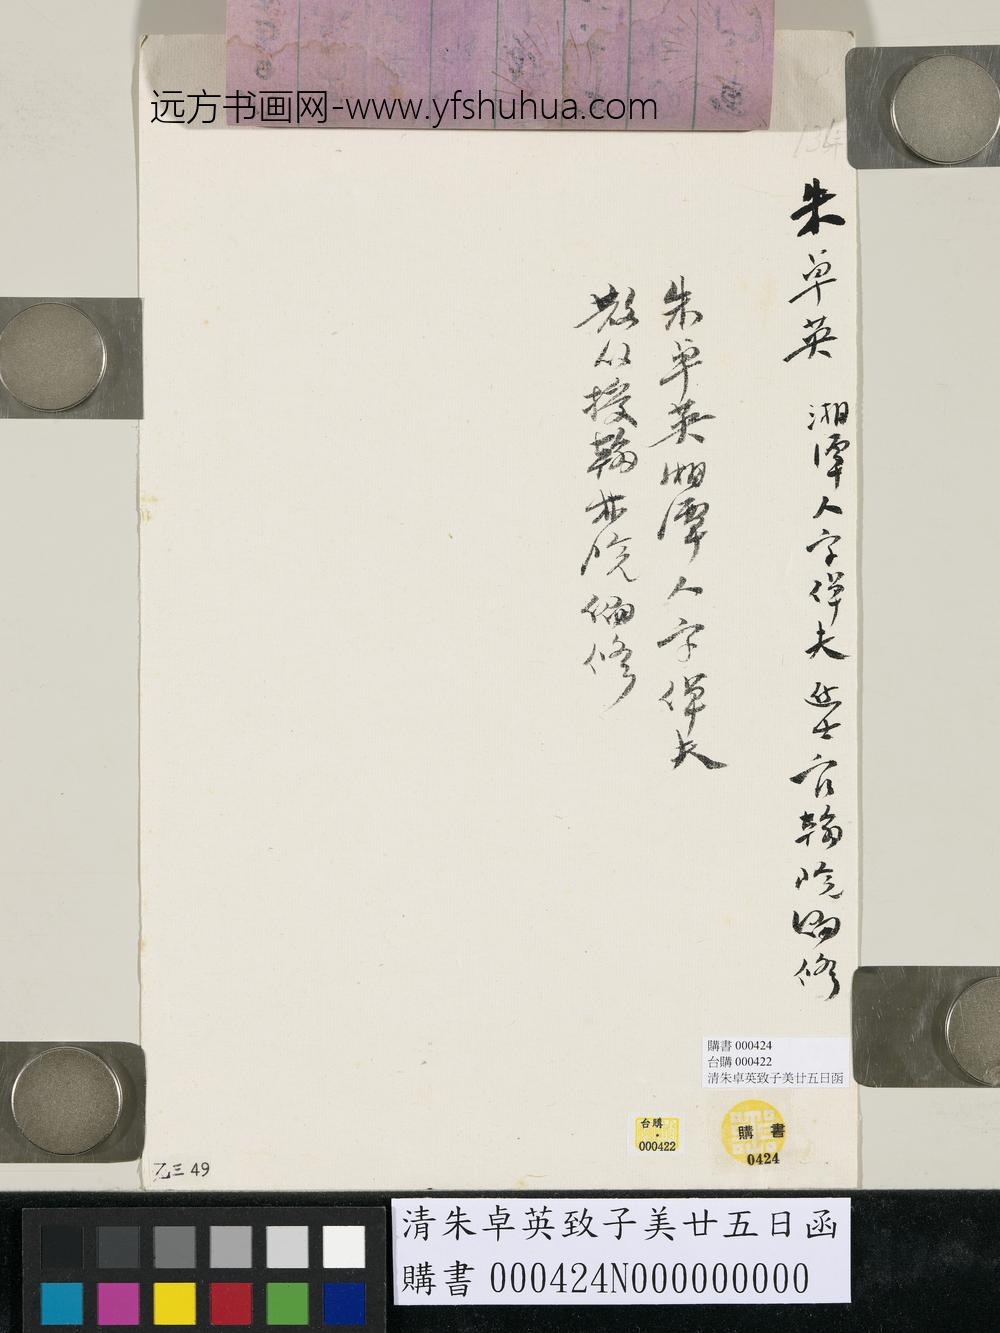 远方书画网-www.yfshuhua.com
134
朱卓英 湘潭人字倬夫 進士官翰院編修
朱卓英湘潭人字倬夫
散館授翰林院編修
購書 000424
台購 000422
清朱卓英致子美廿五日函
台購
000422
購書
0424
乙三 49
清朱卓英致子美廿五日函
購書 000424N000000000